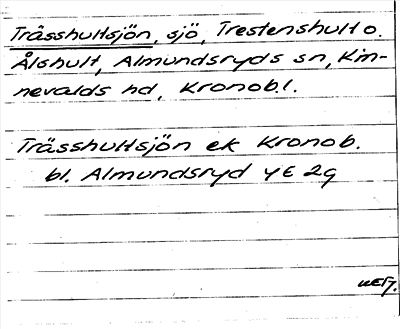 Trässhultsjön, sjö, Trestenshult o.
Ålshult, Almundsryds sn, Kin-
nevalds hd, Kronob.l.
Trässhultsjön ek Kronob.
bl. Almundsryd 4E 2g